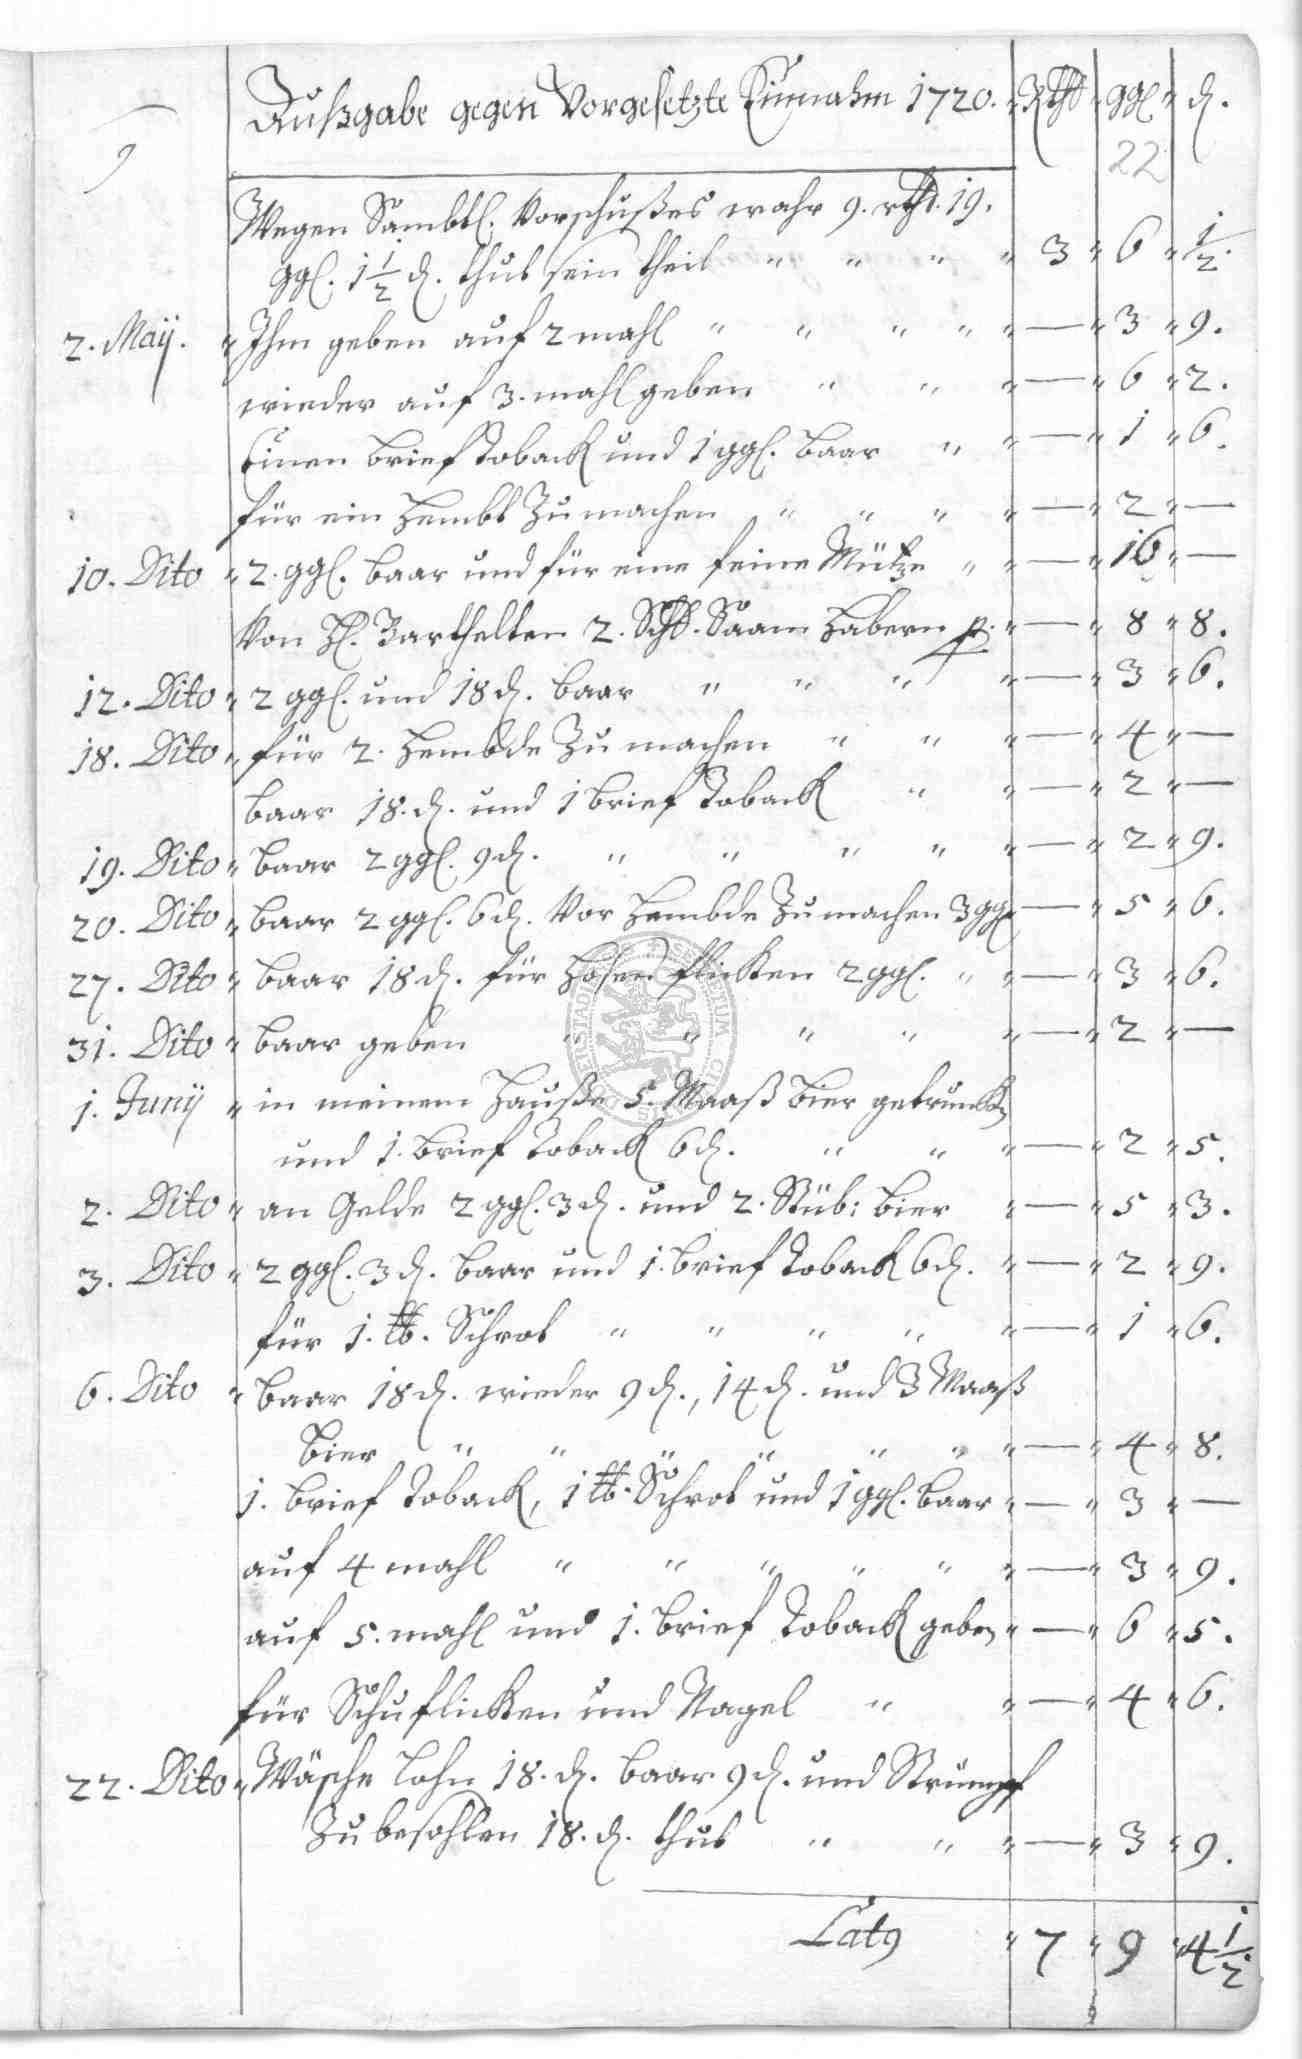 Außgabe gegen Vorgesetzte Einnahm 1720. Rthl ggl. d.
22
Wegen Sambtl. Vorschußes wahr 9. rthl. 19.
ggl. 1 1/2 d. thut sein theil " " " " 3 " 6 " 1/2.
2. Maij. " Ihm geben auf 2 mahl " " " " " — " 3 " 9.
wieder auf 3. mahl geben " " " — " 6 " 2.
Einen brief Toback und 1 ggl. baar " " — " 1 " 6.
für ein Hembt Zu machen " " " " — " 2 " —
10. Dito " 2. ggl. baar und für eine feine Mütze " " — " 16 " —
Von H. Barthelten 2. Schfl. Saam Habern p. " — " 8 " 8.
12. Dito " 2 ggl. und 18 d. baar " " " " — " 3 " 6.
18. Dito " für 2. Hembde Zu machen " " " — " 4 " —
baar 18. d. und 1 brief Toback " " — " 2 " —
19. Dito " baar 2 ggl. 9 d. " " " " " — " 2 " 9.
20. Dito " baar 2 ggl. 6 d. Vor Hembde Zu machen 3 ggl. — " 5 " 6.
27. Dito " baar 18 d. für Hosen flicken 2 ggl. " " — " 3 " 6.
31. Dito " baar geben " " " " " — " 2 " —
1. Junij " in meinem Hauße 5. Maaß bier getruncken
und 1. brief Toback 6 d. " " " — " 2 " 5.
2. Dito " an Gelde 2 ggl. 3 d. und 2. Stüb: bier " — " 5 " 3.
3. Dito " 2 ggl. 3 d. baar und 1. brief Toback 6 d. " — " 2 " 9.
für 1. lb. Schrot " " " " " — " 1 " 6.
6. Dito " baar 18 d. wieder 9 d., 14 d. und 3 Maaß
bier " " " " " " " — " 4 " 8.
1. brief Toback, 1 lb. Schrot und 1 ggl. baar " — " 3 " —
auf 4 mahl " " " " " " — " 3 " 9.
auf 5. mahl und 1. brief Toback geben " — " 6 " 5.
für Schuflicken und Nagel " " — " 4 " 6.
22. Dito " Wäsche lohn 18. d. baar 9 d. und Strumpf
Zu besohlen 18. d. thut " " " — " 3 " 9.
Lat9 " 7 " 9 " 4 1/2